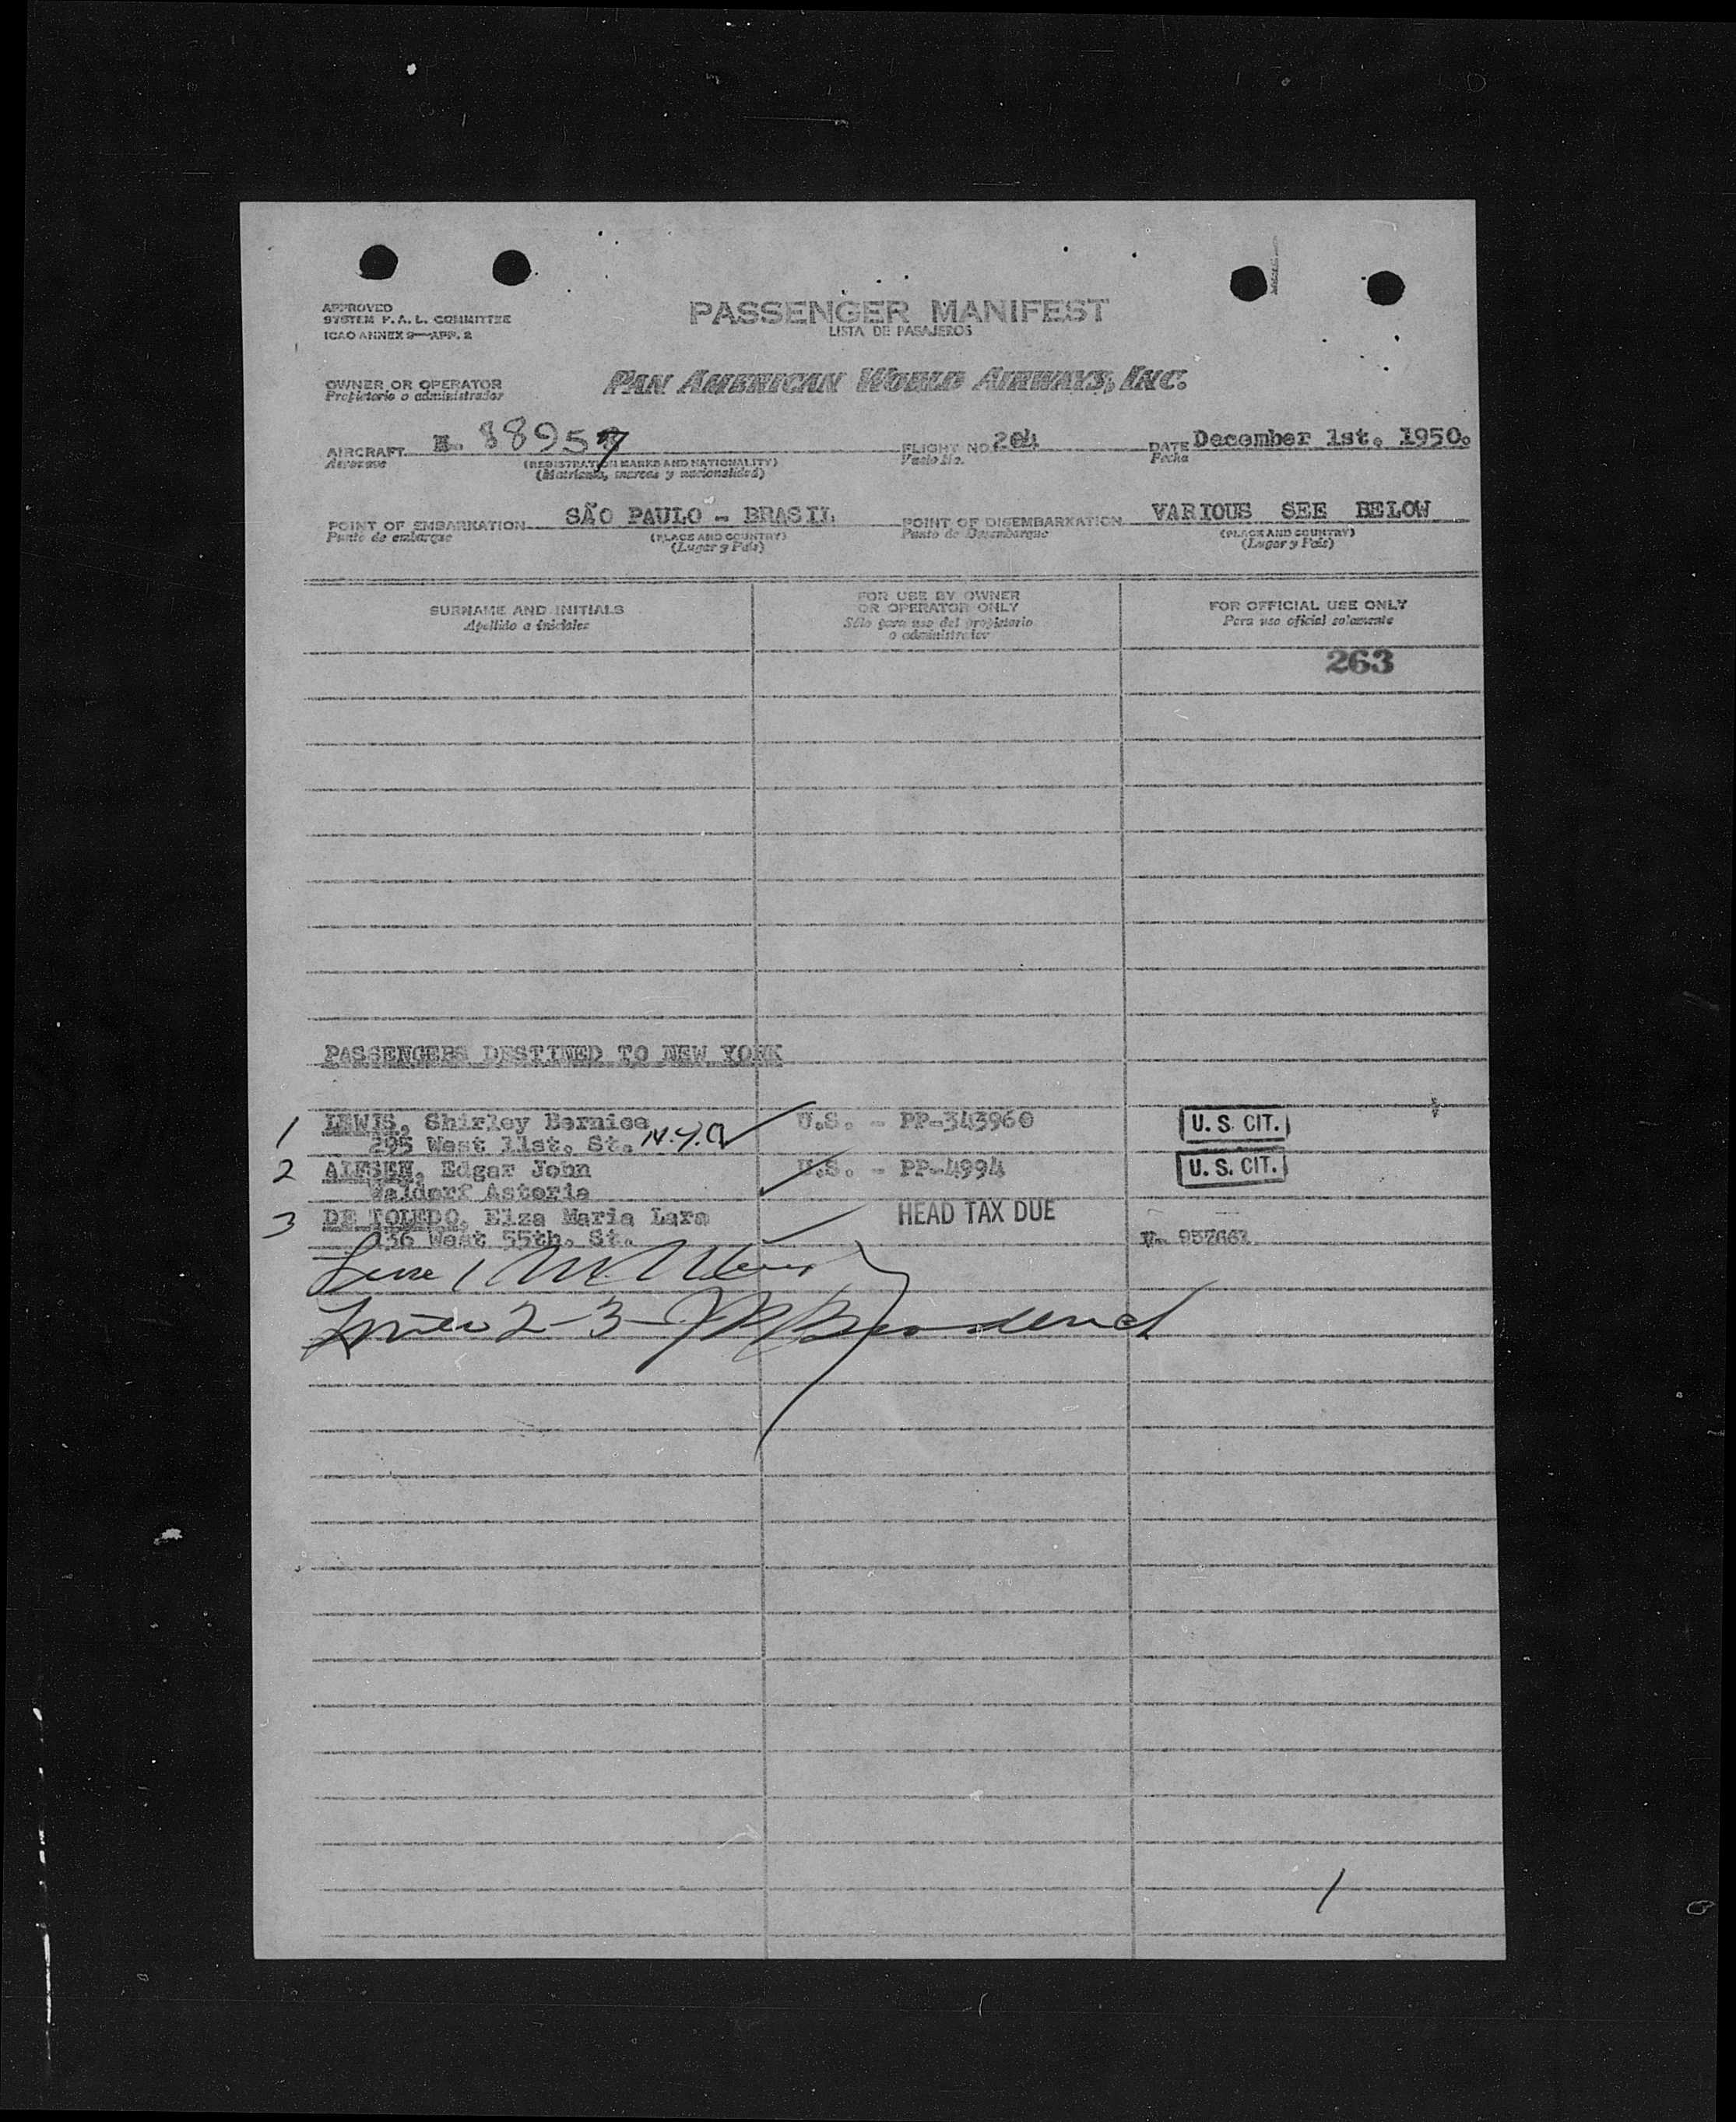 APPROVED
SYSTEM F. A. L. COMMITTEE
ICAO ANNEX 9—APP. 2
PASSENGER MANIFEST
LISTA DE PASAJEROS
OWNER OR OPERATOR
Propietario o administrador
PAN AMERICAN WORLD AIRWAYS, INC.
AIRCRAFT N- 88957
Aeronave
(REGISTRATION MARKS AND NATIONALITY)
(Matrícula, marcas y nacionalidad)
FLIGHT NO. 204
Vuelo No.
DATE December 1st. 1950.
Fecha
POINT OF EMBARKATION SÃO PAULO - BRASIL
Punto de embarque
(PLACE AND COUNTRY)
(Lugar y País)
POINT OF DISEMBARKATION VARIOUS SEE BELOW
Punto de Desembarque
(PLACE AND COUNTRY)
(Lugar y País)
SURNAME AND INITIALS
Apellido a iniciales
FOR USE BY OWNER
OR OPERATOR ONLY
Sólo para uso del propietario
o administrador
FOR OFFICIAL USE ONLY
Para uso oficial solamente
263
PASSENGERS DESTINED TO NEW YORK
1 LEWIS, Shirley Bernice U.S. - PP-343960 U. S. CIT.
295 West 11st. St. N.Y.C.
2 Edgar John U.S. - PP-4994 U. S. CIT.
Waldorf Astoria
3 DE TOLEDO, Elza Maria Lara HEAD TAX DUE
136 West 55th. St.
Line 1
Lines 2-3-
1